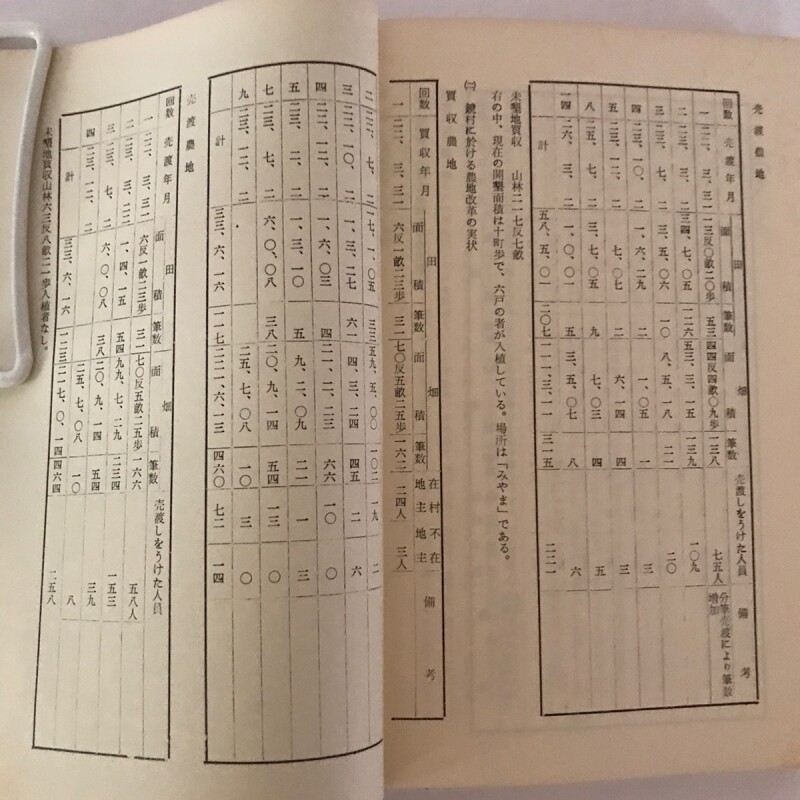 売渡農地
回数 売渡年月 田 面積 筆数 畑 面積 筆数 売渡しをうけた人員 備考
一 二二、三、三一 一三反〇畝二〇歩 五三 四四反四畝〇九歩 一三八 七五人 分筆売渡により筆数増加
二 二三、三、二 三四、七、〇五 一二六 五三、一、一五 一三九 一〇九
三 二三、七、二 三、五、〇六 一〇 八、五、一八 二一 二〇
四 二三、一〇、二 一、六、二九 二 一、〇五 一 三
五 二三、一二、二 七、〇七 二 六、一四 四 三
八 二五、七、二 三、七、〇五 九 七、〇三 四 五
一四 二六、三、二 一、〇、〇一 五 三、五、〇七 八 六
計 五八、五、〇一 二〇七 一一一、三、一一 三一五 二二一
未墾地買収 山林二一七反七畝
右の中、現在の開墾面積は十町歩で、六戸の者が入植している。場所は「みやま」である。
㈡ 鏡村に於ける農地改革の実状
買収農地
回数 買収年月 田 面積 筆数 畑 面積 筆数 在村地主 不在地主 備考
一 二二、三、三一 六反一畝二三歩 三一 七〇反五畝二五歩 一六二 二四人 三人
二 二三、七、二 一七、一、〇五 三三 五九、五、〇〇 一〇二 一九 二
三 二二、一〇、二 一、三、二七 六一 四、三、二八 四五 二 六
四 二二、一二、二 一、六、〇三 四 二一、二、二三 六六 一〇 〇
五 二三、二、二 一、三、一〇 五 九、二、〇九 二一 一 三
七 二三、七、二 六、〇、〇八 三八 二〇、九、一四 五四 一三 〇
九 二三、一二、二 二五、七、〇八 一〇 三 〇
計 三三、六、一六 一一七 二一一、六、一三 四六〇 七二 一四
売渡農地
回数 売渡年月 田 面積 筆数 畑 面積 筆数 売渡しをうけた人員
一 二二、三、三一 六反一畝二三歩 三一 七〇反五畝二五歩 一六六 五八人
二 二三、三、二二 一、四、一五 五四 九九、七、二九 二三四 一五三
三 二三、七、二 六、〇、〇八 三八 二〇、九、一四 五四 三九
四 二三、一二、二 二五、七、〇八 一〇 八
計 三三、六、一六 一二三 二一七、〇、一四 四六四 二五八
未墾地買収山林六三反八畝二一歩入植者なし。